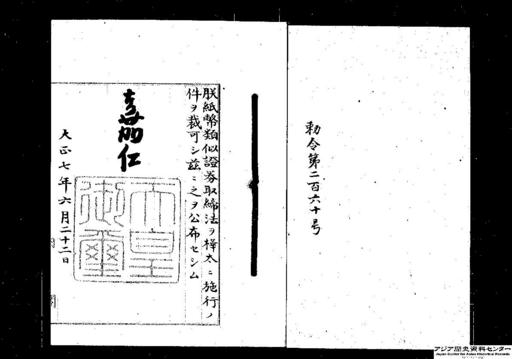 勅令第二百六十号
朕紙幣類似證券取締法ヲ樺太ニ施行ノ
件ヲ裁可シ茲ニ之ヲ公布セシム
嘉仁
天皇
御璽
大正七年六月二十二日
アジア歴史資料センター
Japan Center for Asian Historical Records